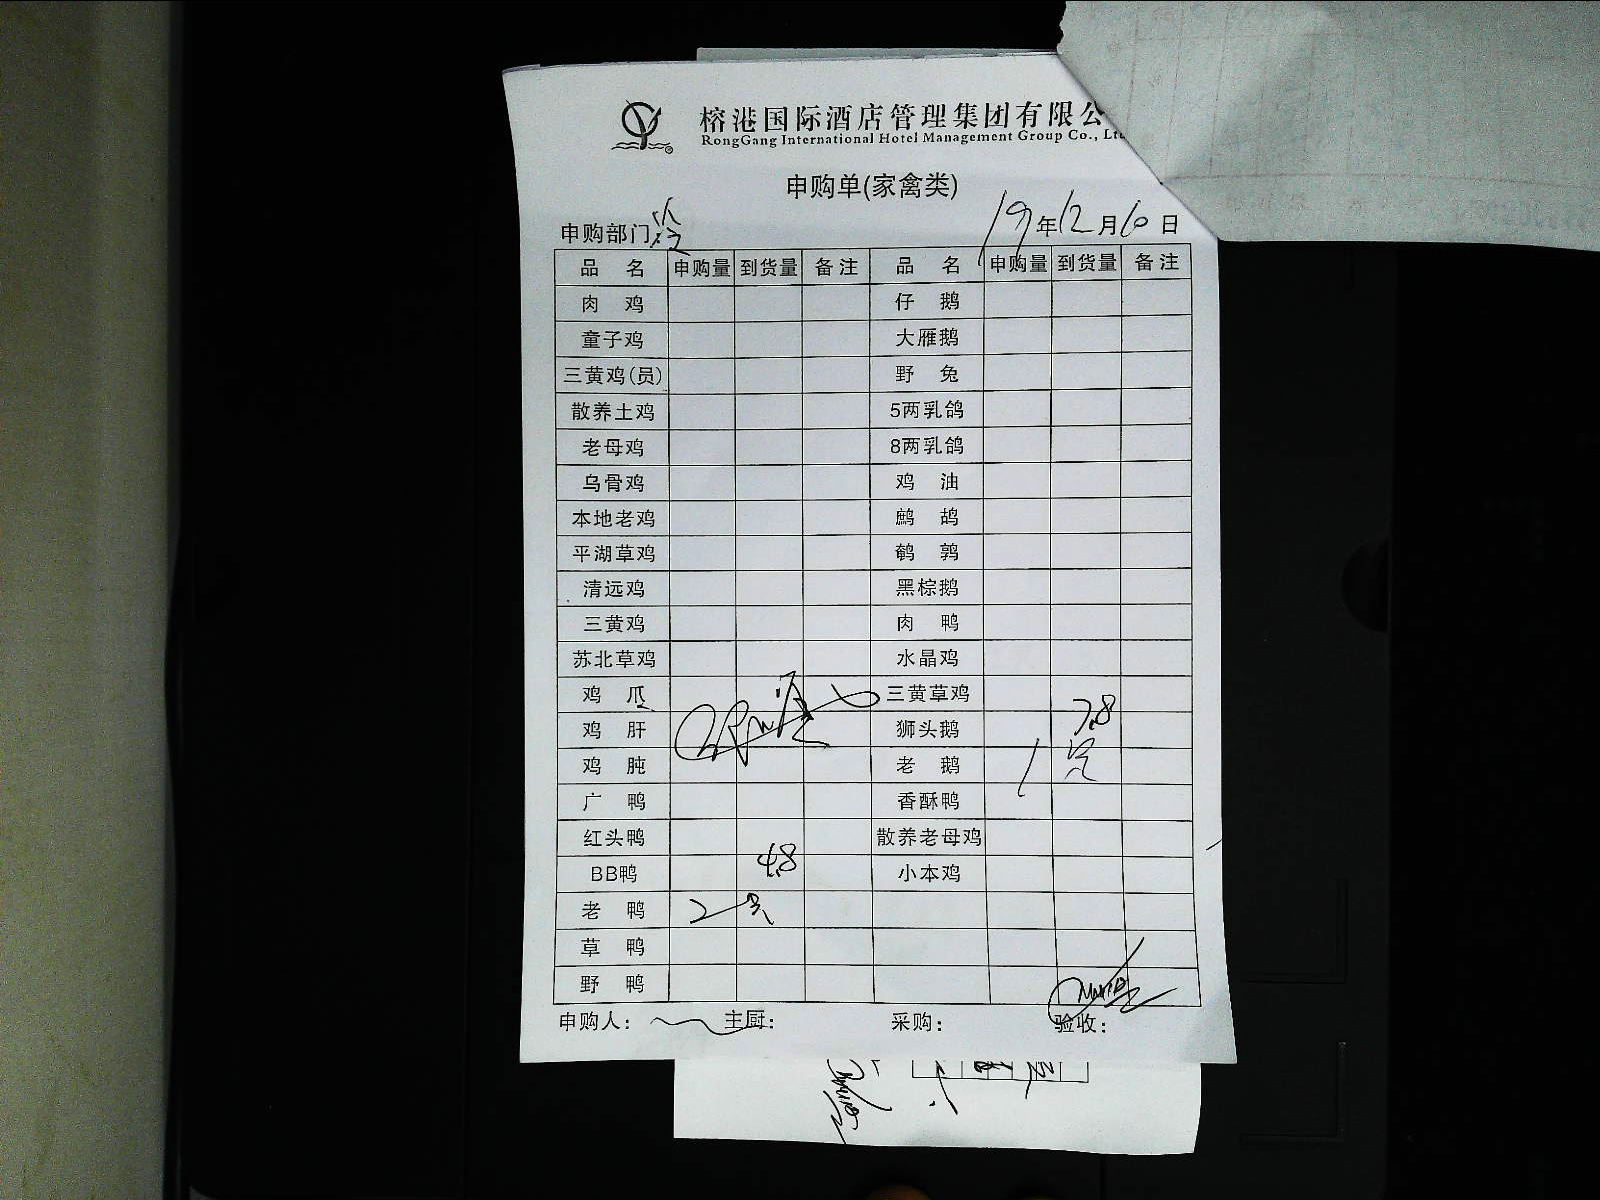 榕港国际酒店管理集团有限公
RongGang International Hotel Management Group Co., Ltd
申购单(家禽类)
申购部门: 冷 19年12月10日
品名 申购量 到货量 备注 品名 申购量 到货量 备注
肉鸡 仔鹅
童子鸡 大雁鹅
三黄鸡(员) 野兔
散养土鸡 5两乳鸽
老母鸡 8两乳鸽
乌骨鸡 鸡油
本地老鸡 鹧鸪
平湖草鸡 鹌鹑
清远鸡 黑棕鹅
三黄鸡 肉鸭
苏北草鸡 水晶鸡
鸡爪 三黄草鸡
鸡肝 狮头鹅 7.8
鸡肫 老鹅 1只
广鸭 香酥鸭
红头鸭 散养老母鸡
BB鸭 4.8 小本鸡
老鸭 2只
草鸭
野鸭
申购人: 主厨: 采购: 验收: